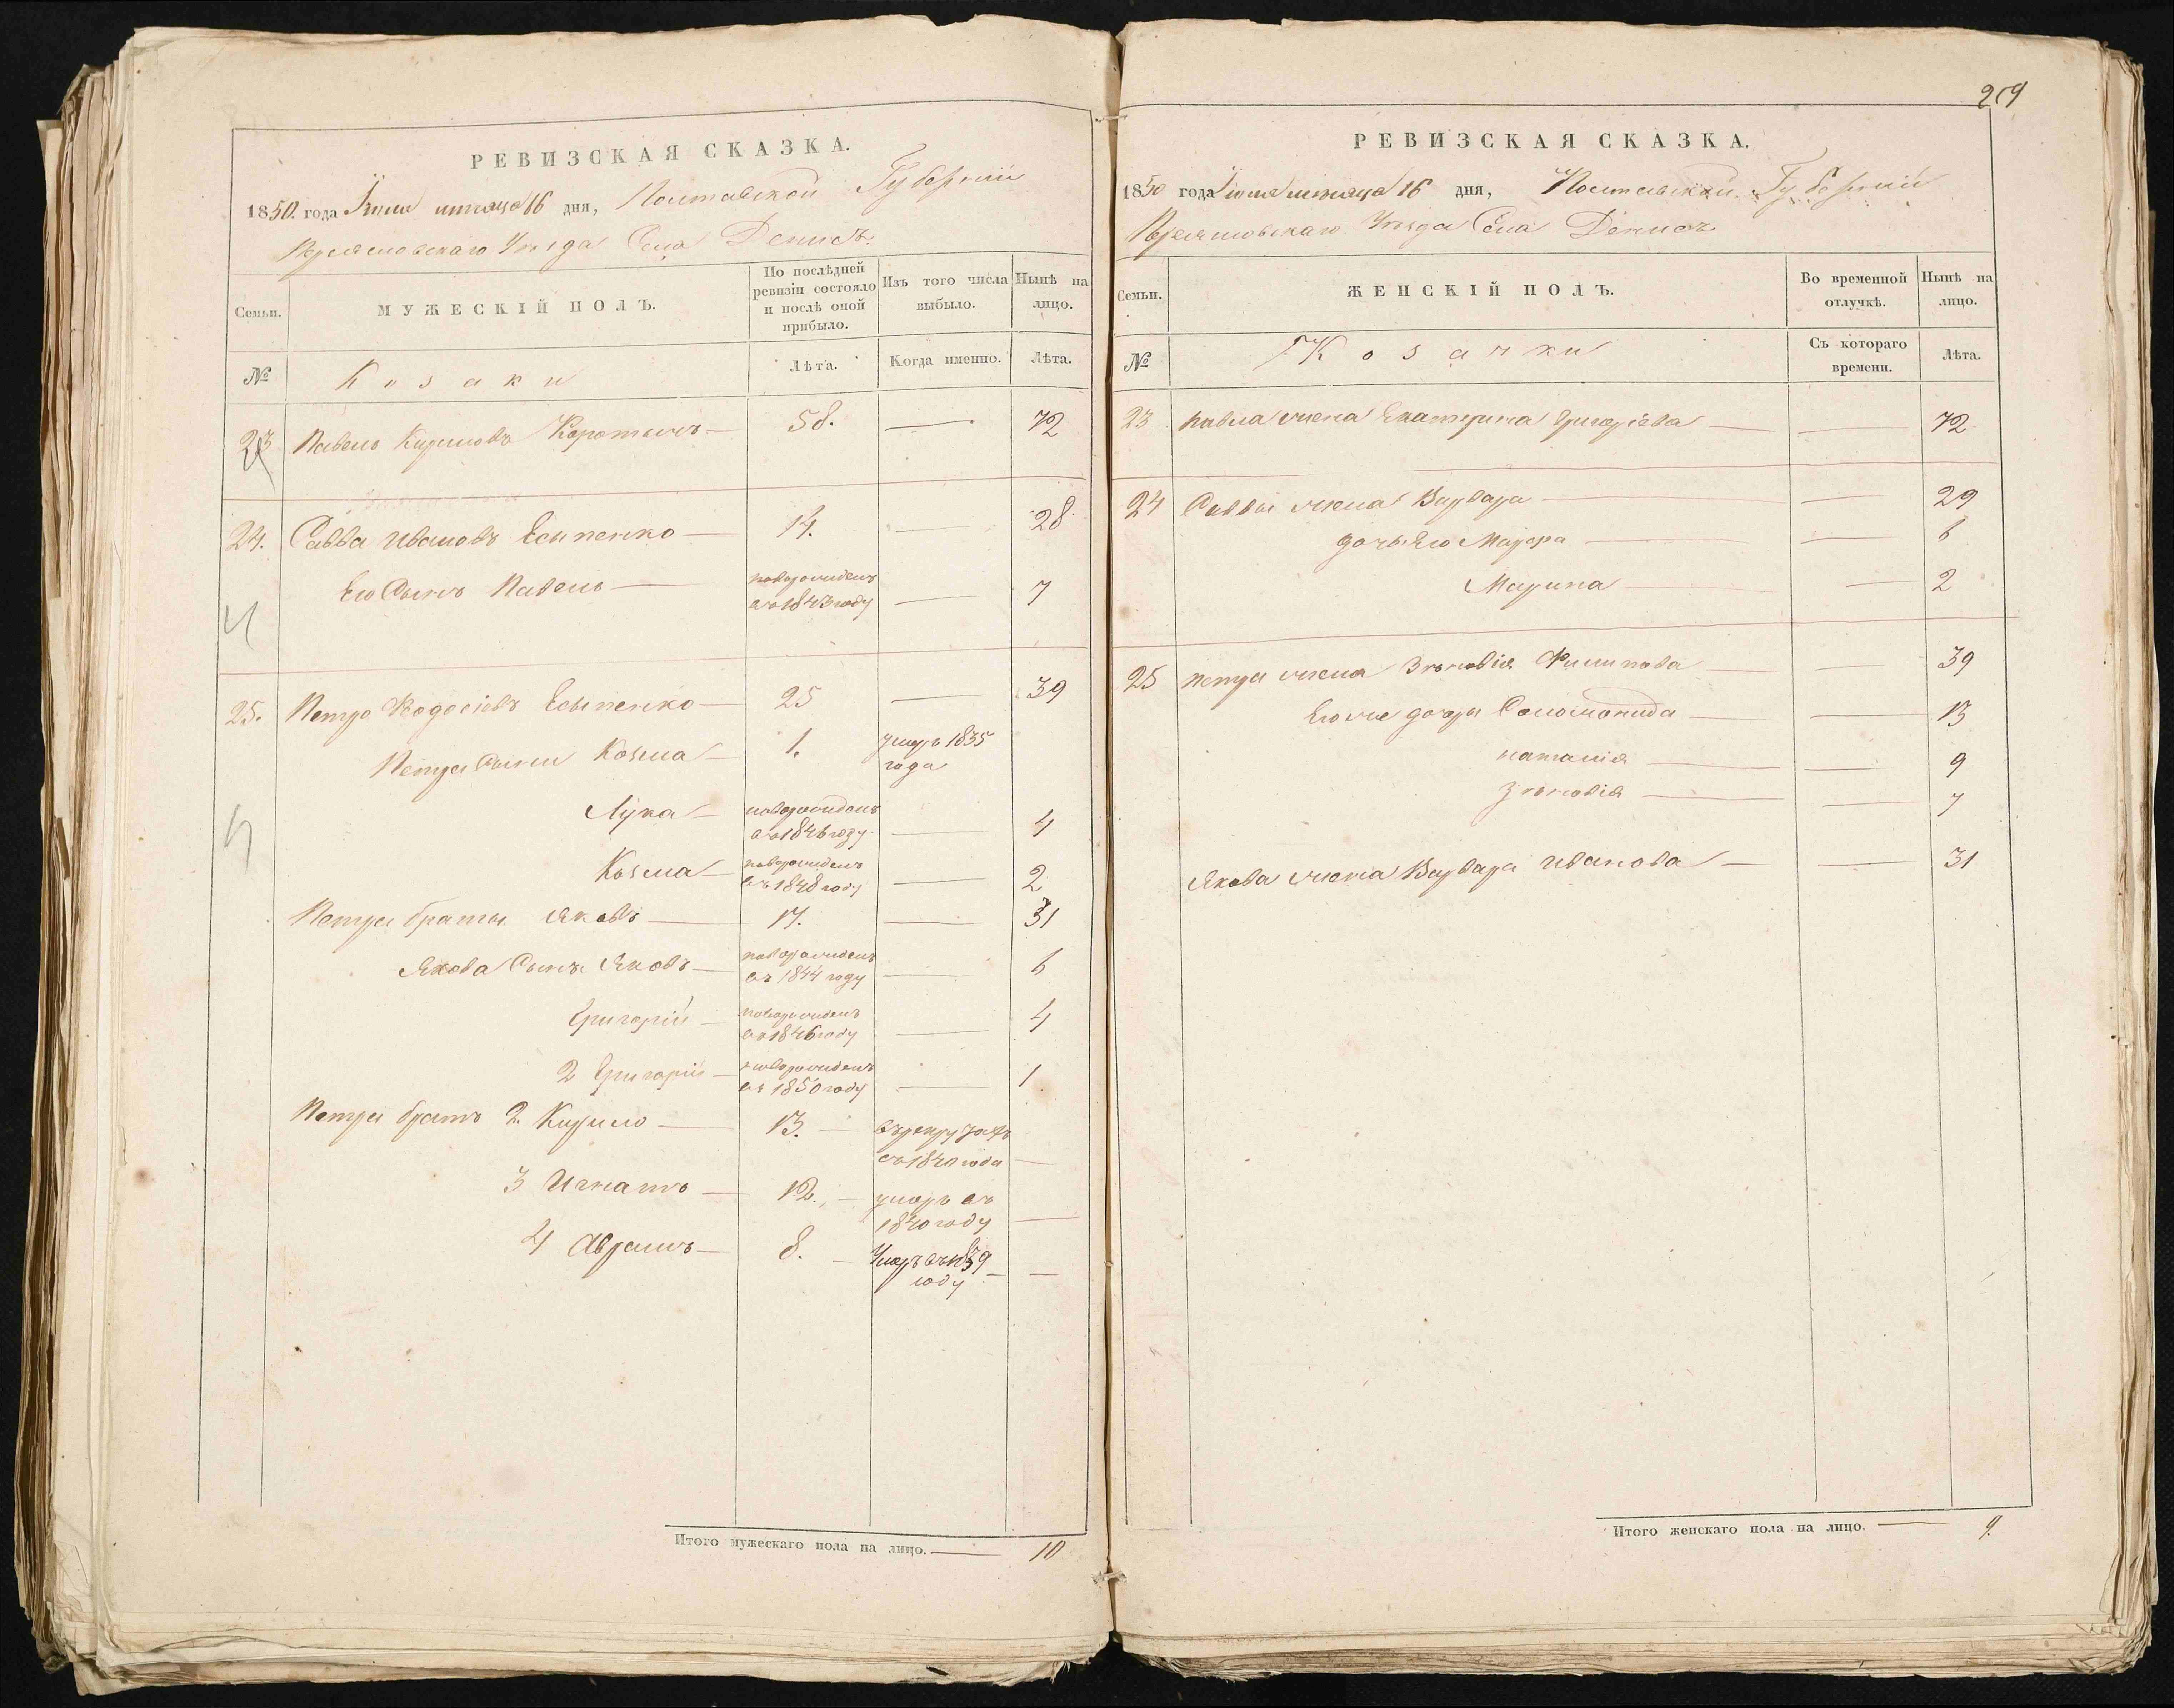 219
РЕВИЗСКАЯ СКАЗКА.
1850. года Іюля мѣсяца 16 дня, Полтавской Губерніи
Переясловскаго Уѣзда Села Денисъ.
Семьи.
МУЖЕСКІЙ ПОЛЪ.
По послѣдней ревизіи состояло и послѣ оной прибыло.
Изъ того числа выбыло.
Нынѣ на лицо.
№
Козаки
Лѣта.
Когда именно.
Лѣта.
23 Павелъ Кириловъ Коротычъ — 58. — 72
24. Савва Ивановъ Есыпенко — 14. — 28
Его Сынъ Павелъ — новорожденъ въ 1843 году — 7
25. Петро Ѳедосіевъ Есыпенко — 25 — 39
Петра Сыны Козма — 1. умеръ 1835 года
Лука — новорожденъ въ 1846 году — 4
Козма — новорожденъ въ 1848 году — 2
Петра братья Яковъ — 17. — 31
Якова Сынъ Яковъ — новорожденъ въ 1844 году — 6
Григорій — новорожденъ въ 1846 году — 4
2 Григорій — новорожденъ въ 1850 году — 1
Петра братъ 2. Кирило — 13. — въ рекрутахъ съ 1840 года —
3 Игнатъ — 12. — умеръ въ 1840 году —
4 Аврамъ — 8. — Умеръ въ 1839 году — —
Итого мужескаго пола на лицо. — 10
РЕВИЗСКАЯ СКАЗКА.
1850 года Іюля мѣсяца 16 дня, Полтавской Губерніи
Переясловскаго Уѣзда Села Денисъ
Семьи.
ЖЕНСКІЙ ПОЛЪ.
Во временной отлучкѣ.
Нынѣ на лицо.
№
Козачки
Съ котораго времени.
Лѣта.
23 Павла жена Екатерина Григорієва — — 72
24 Саввы жена Варвара — — 29
дочь Его Мавра — — 6
Марина — — 2
25 Петра жена Зѣновія Филипова — — 39
Его же дочери Соломонида — — 13
Наталія — — 9
Зѣновія — — 7
Якова жена Варвара Иванова — — 31
Итого женскаго пола на лицо. — 9.